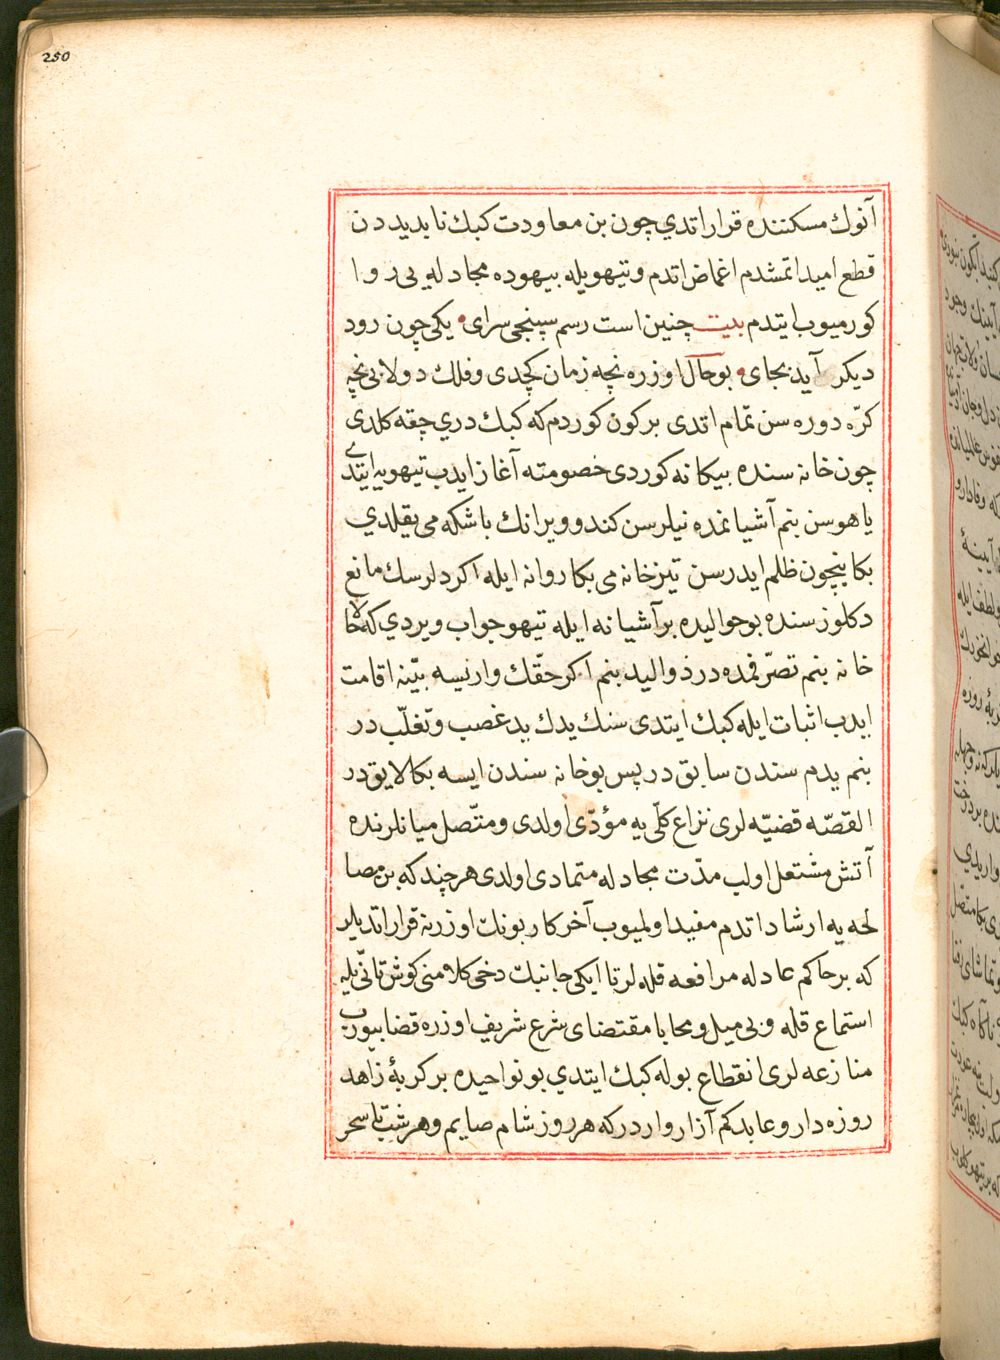 250
آنوك مسكننده قرار اتدي چون بن معاودت كبك نابديددن
قطع اميد اتمشدم اغماض اتدم و تيهويله بيهوده مجادله يي روا
كورميوب ايتدم بيت چنين است رسم سپنجى سراى • يكى چون رود
ديكر آيد بجاى • بوحال اوزره نچه زمان كچدى وفلك دولابى نچه
كرّه دوره سن تمام اتدى بركون كوردم كه كبك دري چقه كلدى
چون خانه سنده بيكانه كوردى خصومته آغاز ايدب تيهويه ايتدى
ياهو سن بنم آشيانمده نيلرسن كندو ويرانك باشكه مى يقلدي
بكا نيچون ظلم ايدرسن تيز خانه مى بكا روانه ايله اكر ديلرسك مانع
دكلوز سنده بوحواليده برآشيانه ايله تيهو جواب ويردي كه حالا
خانه بنم تصرّفمده در ذواليد بنم اكر حقّك وارنيسه بيّنه اقامت
ايدب اثبات ايله كبك ايتدى سنك يدك يد غصب و تغلّب در
بنم يدم سندن سابق در پس بوخانه سندن ايسه بكا لايق در
القصّه قضيّه لرى نزاع كلّى يه مؤدّى اولدى و متّصل ميانلرنده
آتش مشتعل اولب مدّت مجادله متمادى اولدى هرچند كه بن مصا
لحه يه ارشاد اتدم مفيد اولميوب آخر كار بونك اوزرنه قرار اتديلر
كه بر حاكم عادله مرافعه قله لر تا ايكى جانبك دخى كلامنى كوش تأنّى يله
استماع قله و بى ميل و محابا مقتضاى شرع شريف اوزره قضا بيورب
منازعه لرى انقطاع بوله كبك ايتدي بو نواحيده بر كربۀ زاهد
روزه دار و عابد كم آزار واردر كه هر روز شام صايم و هر شب تا سحر